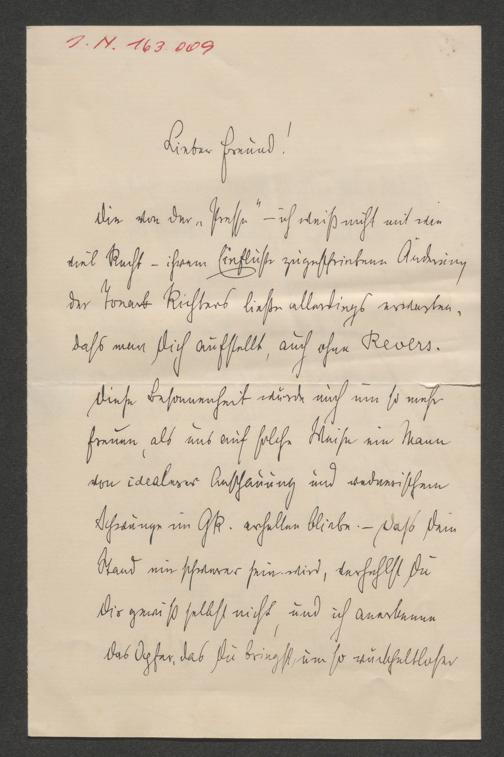 J. N. 163.009
Lieber Freund!
Die von der „Presse“ – ich weiß nicht mit wie
viel Recht – ihrem Einflusse zugeschriebene Änderung
der Tonart Richters ließe allerdings erwarten,
daß man Dich aufstellt, auch ohne Revers.
Diese Besonnenheit würde mich um so mehr
freuen, als uns auf solche Weise ein Mann
von idealerer Anschauung und rednerischem
Schwunge im GR. erhalten bliebe. – Daß Dein
Stand ein schwerer sein wird, verhehlst Du
Dir gewiß selbst nicht, und ich anerkenne
das Opfer, das Du bringst, um so rückhaltloser